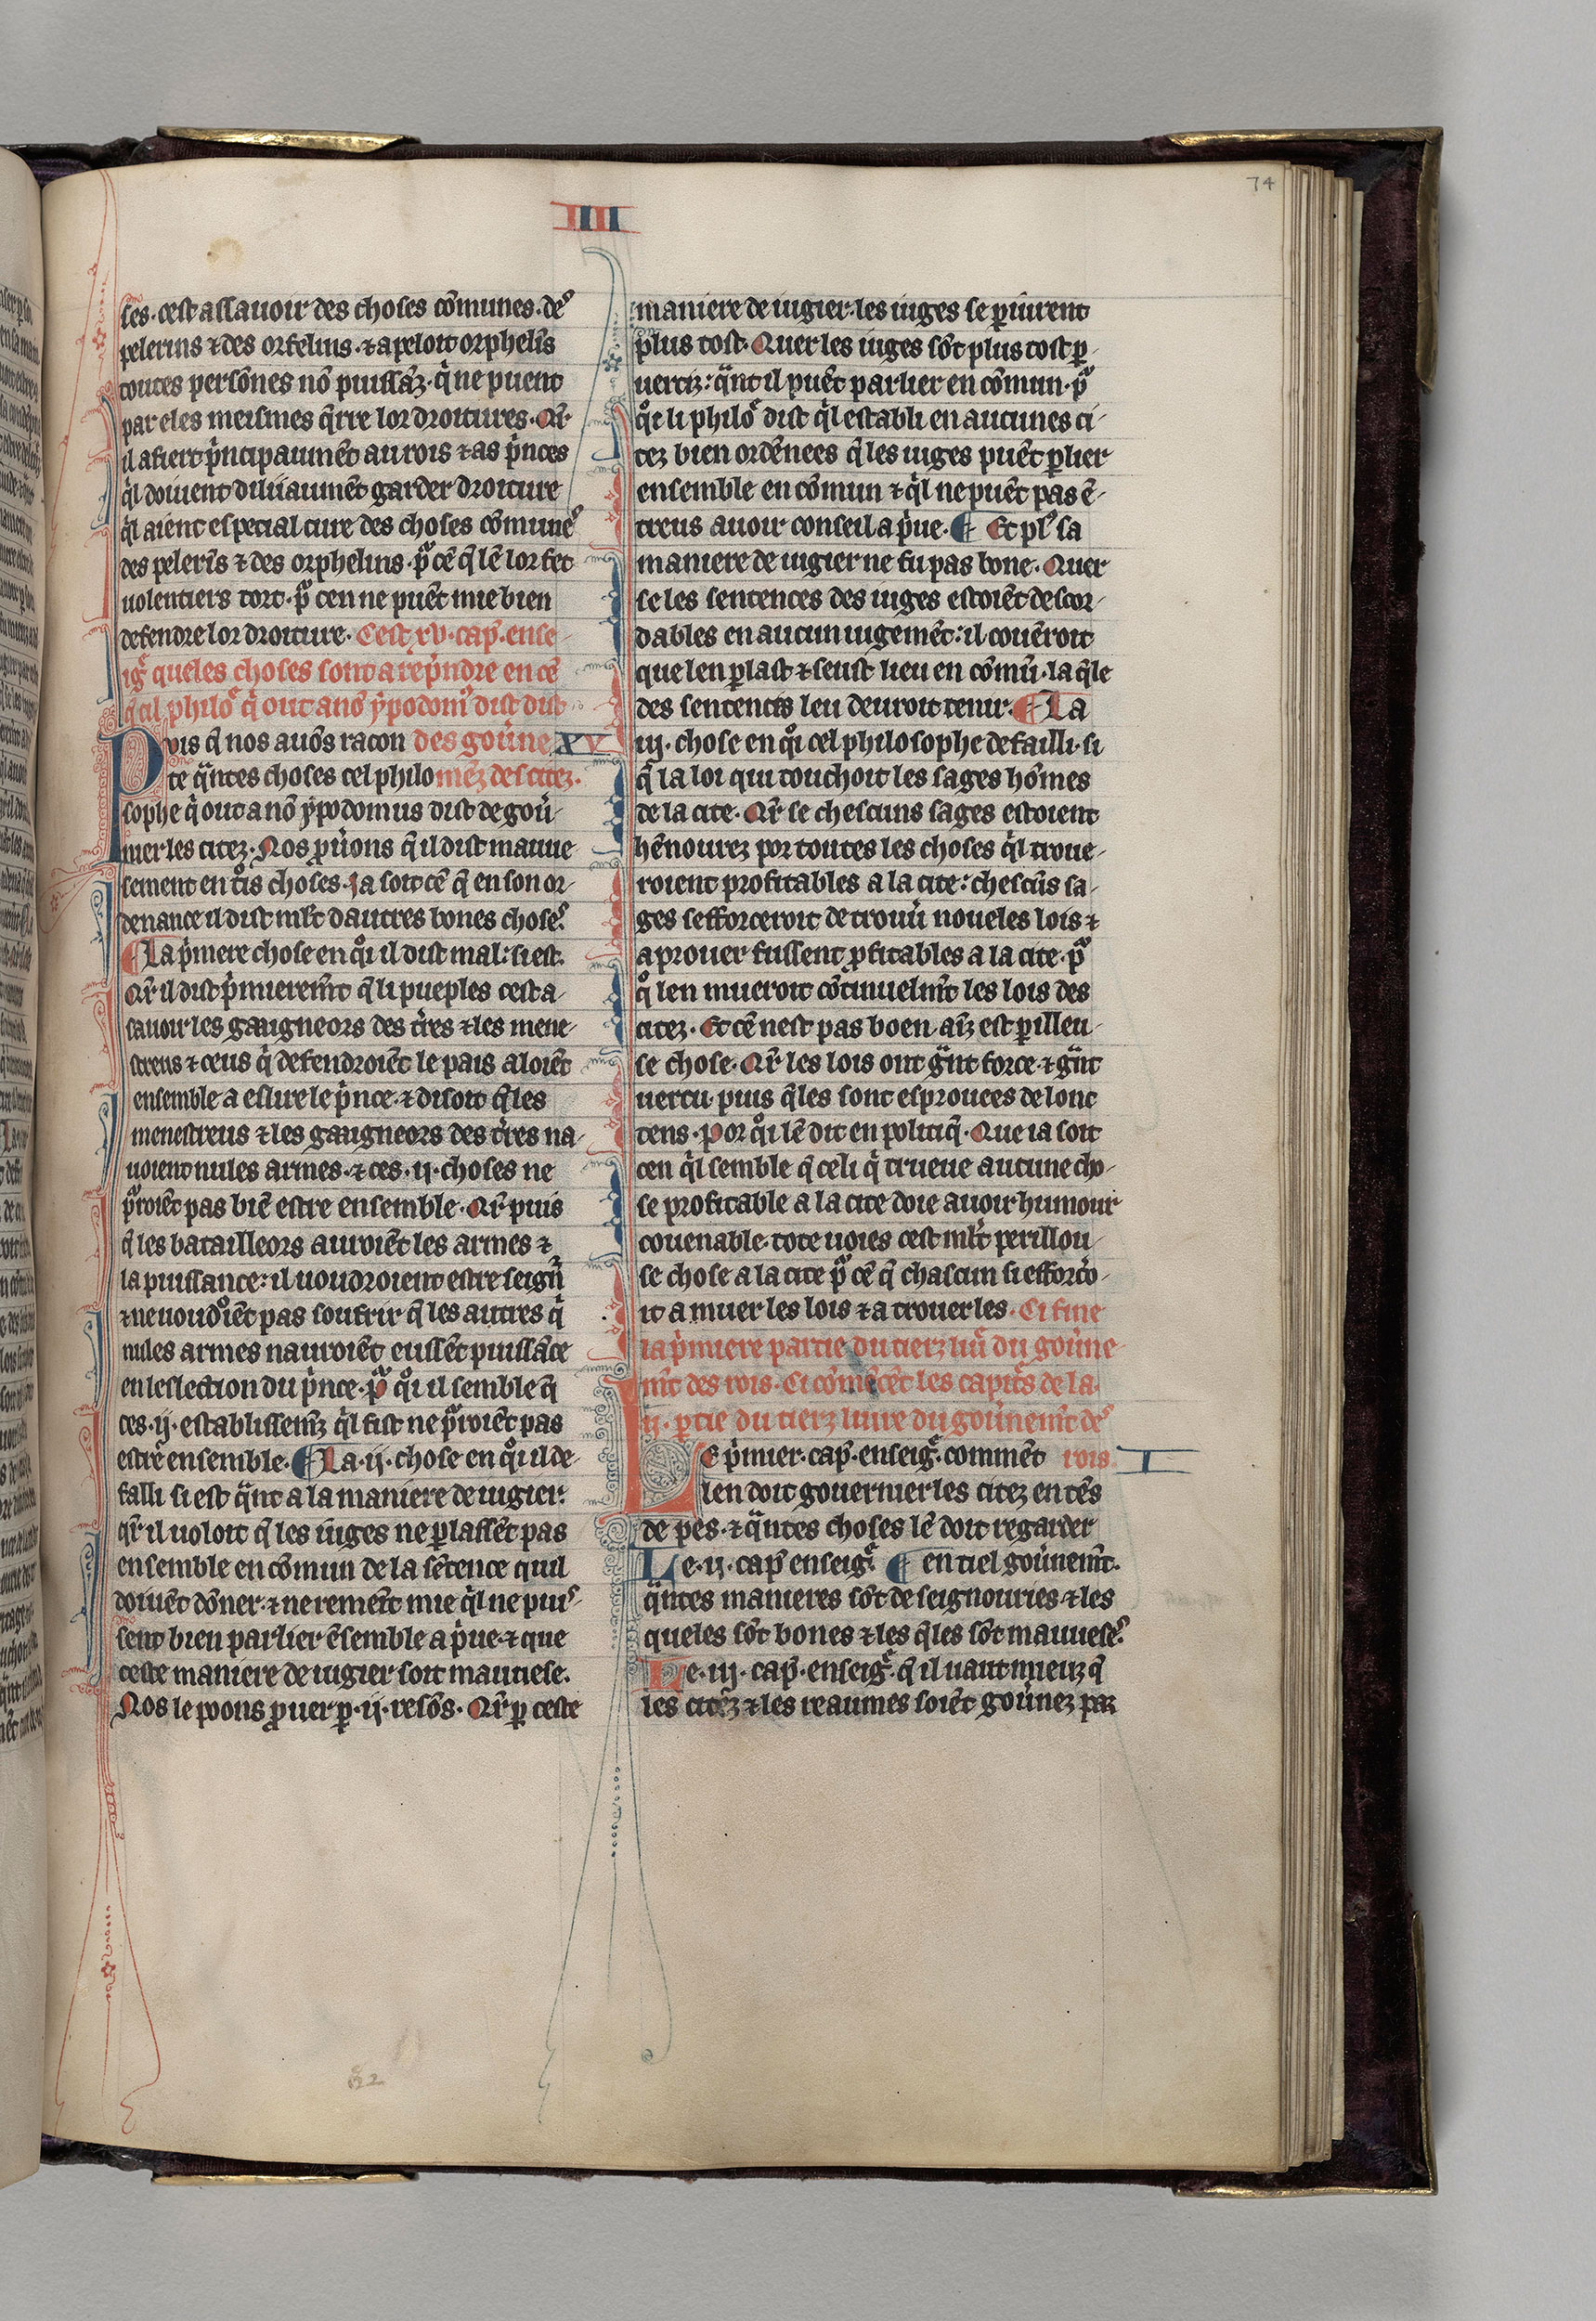 74
IIII
ses. cest assauoir des choses cōmunes. des
pelerins ⁊ des orfelins. ⁊ apeloit orphelīs
toutes persōnes nō puissāz. qͥ ne puent
par eles meismes q̄rre lor droitures. Qr̄
il afiert pͥncipaumēt au rois ⁊ as pͥnces
qͥl doiuent diliiaumēt garder droiture
qͥl aient especial cure des choses cōmunes
des pelerīs ⁊ des orphelins. pͣ cē q̄ lē lor fet
uolentiers tort. pͣ cen ne puēt mie bien
defendre lor droiture. Cest .xv. cap̄. ense-
igͤ queles choses sont a rep̄ndre en cē
q̄ cil philoͤ qͥ out anō ypodomꝰ dist dist
Puis q̄ nos auōs racon des goūne XV
te qͣntes choses cel philo mēz des citez.
sophe qͥ out anō ypodomus dist de goū-
ner les citez. Nos ꝓuͦons q̄ il dist mauue-
sement en tͦis choses. Ja soit cē q̄ en son or-
denance il dist ml̄t dautres bones choses.
¶ La pͥmere chose en qͦi il dist mal: si est.
Qr̄ il dist pͥmierem̄t q̄ li pueples cest a-
sauoir les gaigneors des tr̄es ⁊ les mene-
streus ⁊ ceus qͥ defendroiēt le pais aloiēt
ensemble a eslire le pͥnce. ⁊ disoit q̄ les
menestreus ⁊ les gaigneors des tr̄es na-
uoient nules armes. ⁊ ces .ij. choses ne
pͣroiēt pas biē estre ensemble. Qr̄ puis
q̄ les batailleors auroiēt les armes ⁊
la puissance: il uoudroient estre seign̄
⁊ ne uoudͦiēt pas soufrir q̄ les autres qͥ
nules armes nauroiēt eussēt puissāce
en leslection du pͥnce. pͣ qͦi il semble q̄
ces .ij. establissemēz qͥl fist ne pͣroiēt pas
estre ensemble. ¶ La .ij. chose en qͦi il de-
falli si est qͣnt a la maniere de iugier.
qr̄ il uoloit q̄ les iuges ne ꝑlassēt pas
ensemble en cōmun de la sētence quil
doiuēt dōner. ⁊ ne remēt mie qͥl ne puis-
sent bien parlier ēsemble a pͥue. ⁊ que
ceste maniere de iugier soit mauuese.
Nos le poons ꝓuer ꝑ .ij. resōs. Qr̄ ꝑ ceste
maniere de iugier. les iuges se ꝑiurent
plus tost. Quer les iuges sōt plus tost ꝑ-
uertiz: qͣnt il puēt parlier en cōmun. pͣ
qͦi li philoͤ dist qͥl establi en aucunes ci-
tez bien ordēnees q̄ les iuges puēt ꝑlier
ensemble en cōmun ⁊ qͥl ne puēt pas ē-
treus auoir conseil a pͥue. ¶ Et plꝰ sa
maniere de iugier ne fu pas bone. Quer
se les sentences des iuges estoiēt descor-
dables en aucun iugemēt: il couēroit
que len ꝑlast ⁊ seust lieu en cōmū. la q̄le
des sentences leu deuroit tenir. ¶ La
iij. chose en qͦi cel philosophe defailli. si
q̄ la loi qui touchoit les sages hōmes
de la cite. Qr̄ se chescuns sages estoient
hēnourez por toutes les choses qͥl troue-
roient profitables a la cite: chescūs sa-
ges sefforceroit de trouū noueles lois ⁊
a prouer fussent ꝓfitables a la cite. pͣ
qͦ len mueroit cōtinuelm̄t les lois des
citez. Et cē nest pas boen. aīz est ꝑilleu-
se chose. Qr̄ les lois ont gͣnt force. ⁊ gͣnt
uertu. puis q̄les sont esprouees de lonc
tens. Por qͦi lē dit en politiq̄. Que ia soit
cen qͥl semble q̄ celi qͥ trueue aucune cho-
se profitable a la cite doie auoir humour
couenable. tote uoies cest ml̄t perillou-
se chose a la cite pͣ cē q̄ chascun si efforco-
it a muer les lois ⁊ a trouer les. Ci fine
la pͥmiere partie du tierz liū du goūne-
m̄t des rois. Ci cōmēcēt les capit̄s de la.
ij. ꝑtie du tierz liure du goūnem̄t des
Le pͥmier. cap̄. enseigͤ. commēt rois. I
len doit gouerner les citez en tēs
de pes. ⁊ qͣntes choses lē doit regarder
Le .ij. cap̄ enseigͤ. ¶ en tiel goūnem̄t.
qͣntes manieres sōt de seignouries ⁊ les
queles sōt bones ⁊ les q̄les sōt mauueses.
Le .iij. cap̄. enseigͤ. q̄ il uaut mieuz q̄
les citez ⁊ les reaumes soiēt goūnez par